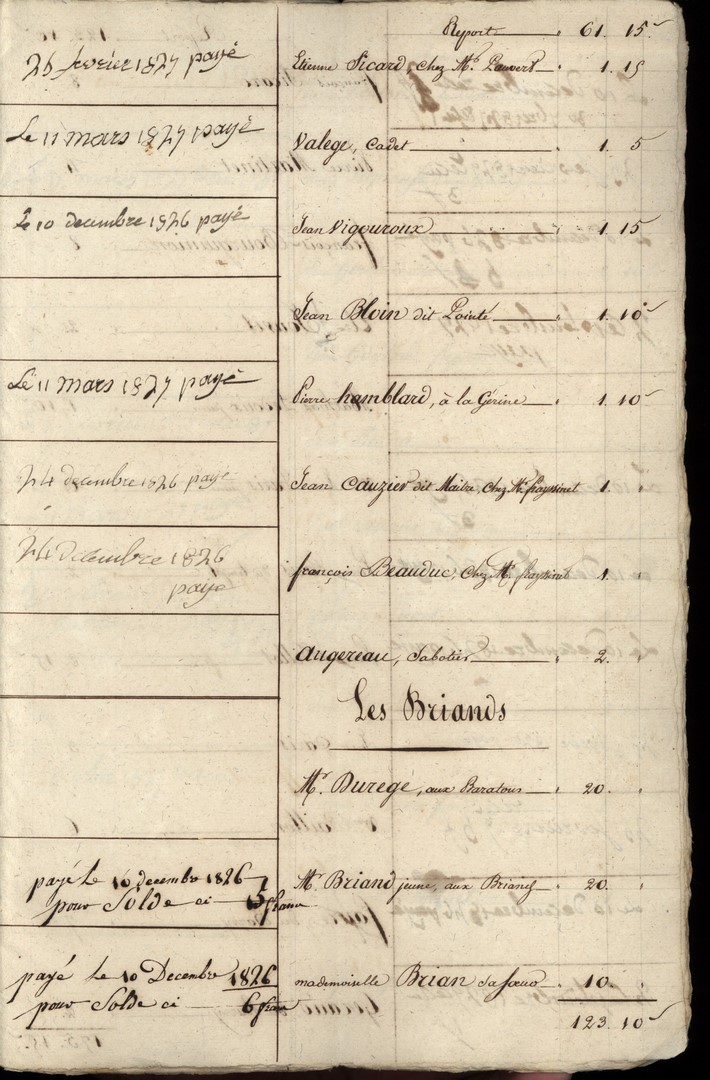 Report 61. 15
24 fevrier 1827 payé
Etienne Sicard, chez Mr. Pauvert 1. 15
Le 11 mars 1827 payé
Valege, Cadet 1. 5
Le 10 decembre 1826 payé
Jean Vigouroux 1. 15
Jean Bloin dit Pointé 1. 10
Le 11 mars 1827 payé
Pierre hamblard, à la Gérine 1. 10
24 decembre 1826 payé
Jean Cauzier dit Maitre, chez Mr. frayssinet 1.
24 decembre 1826
payé
françois Beauduc, chez Mr. frayssinet 1.
Augereau, Sabotier 2.
Les Briands
Mr. Durege, aux Baratous 20.
payé Le 10 decembre 1826
pour Solde ci francs
Mr. Briand jeune, aux Briands 20.
payé Le 10 Decembre 1826
pour Solde ci 6 francs
mademoiselle Brian sa sœur 10.
123. 10